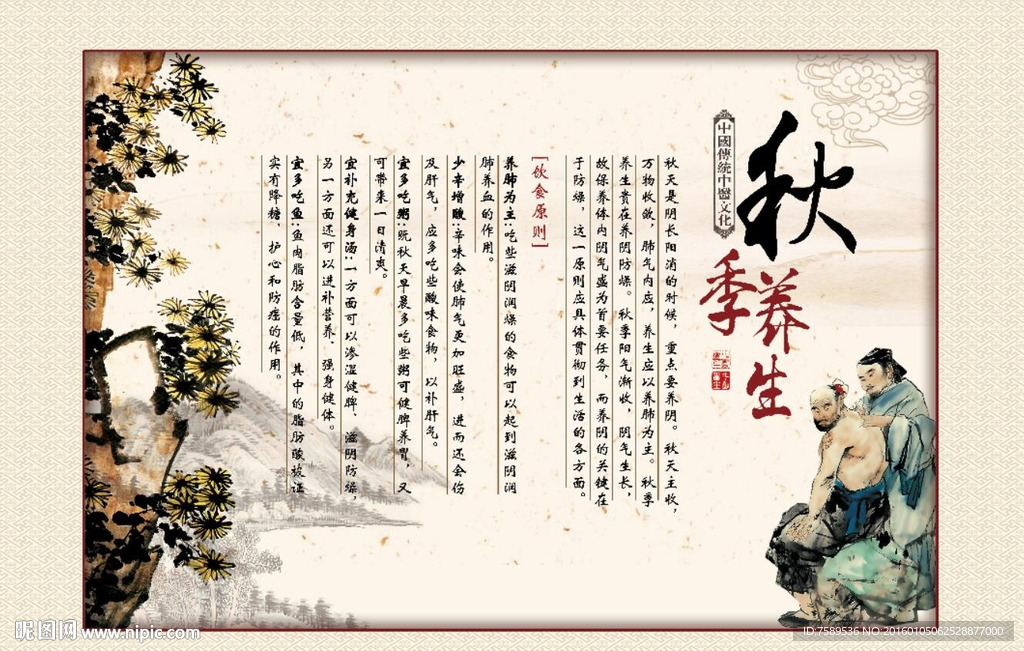 中國傳統中醫文化
秋
季养生
秋天是阴长阳消的时候，重点要养阴。秋天主收，
万物收敛，肺气内应，养生应以养肺为主。秋季
养生贵在养阴防燥。秋季阳气渐收，阴气生长，
故保养体内阴气盛为首要任务，而养阴的关键在
于防燥，这一原则应具体贯彻到生活的各方面。
[饮食原则]
养肺为主:吃些滋阴润燥的食物可以起到滋阴润
肺养血的作用。
少辛增酸:辛味会使肺气更加旺盛，进而还会伤
及肝气，应多吃些酸味食物，以补肝气。
宜多吃粥:玩秋天早晨多吃些粥可健脾养胃，又
可带来一日清爽。
宜补充健身汤:一方面可以渗湿健脾、滋阴防燥，
另一方面还可以进补营养、强身健体。
宜多吃鱼:鱼肉脂肪含量低，其中的脂肪酸被证
实有降糖、护心和防癌的作用。
昵图网 www.nipic.com
ID:7589536 NO:20160105062528877000